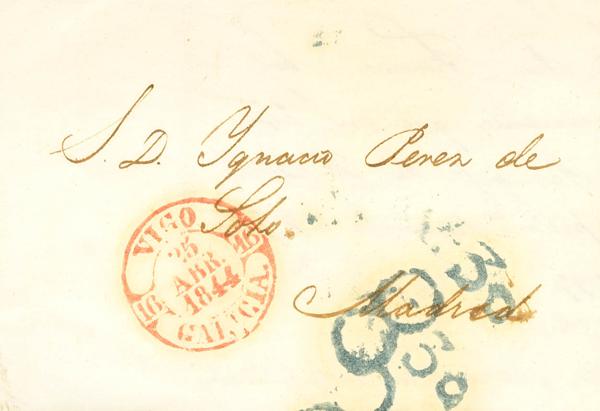 S. D. Ygnacio Perez de
Soto
Madrid
VIGO
25
ABR.
1844
16 16
GALICIA.